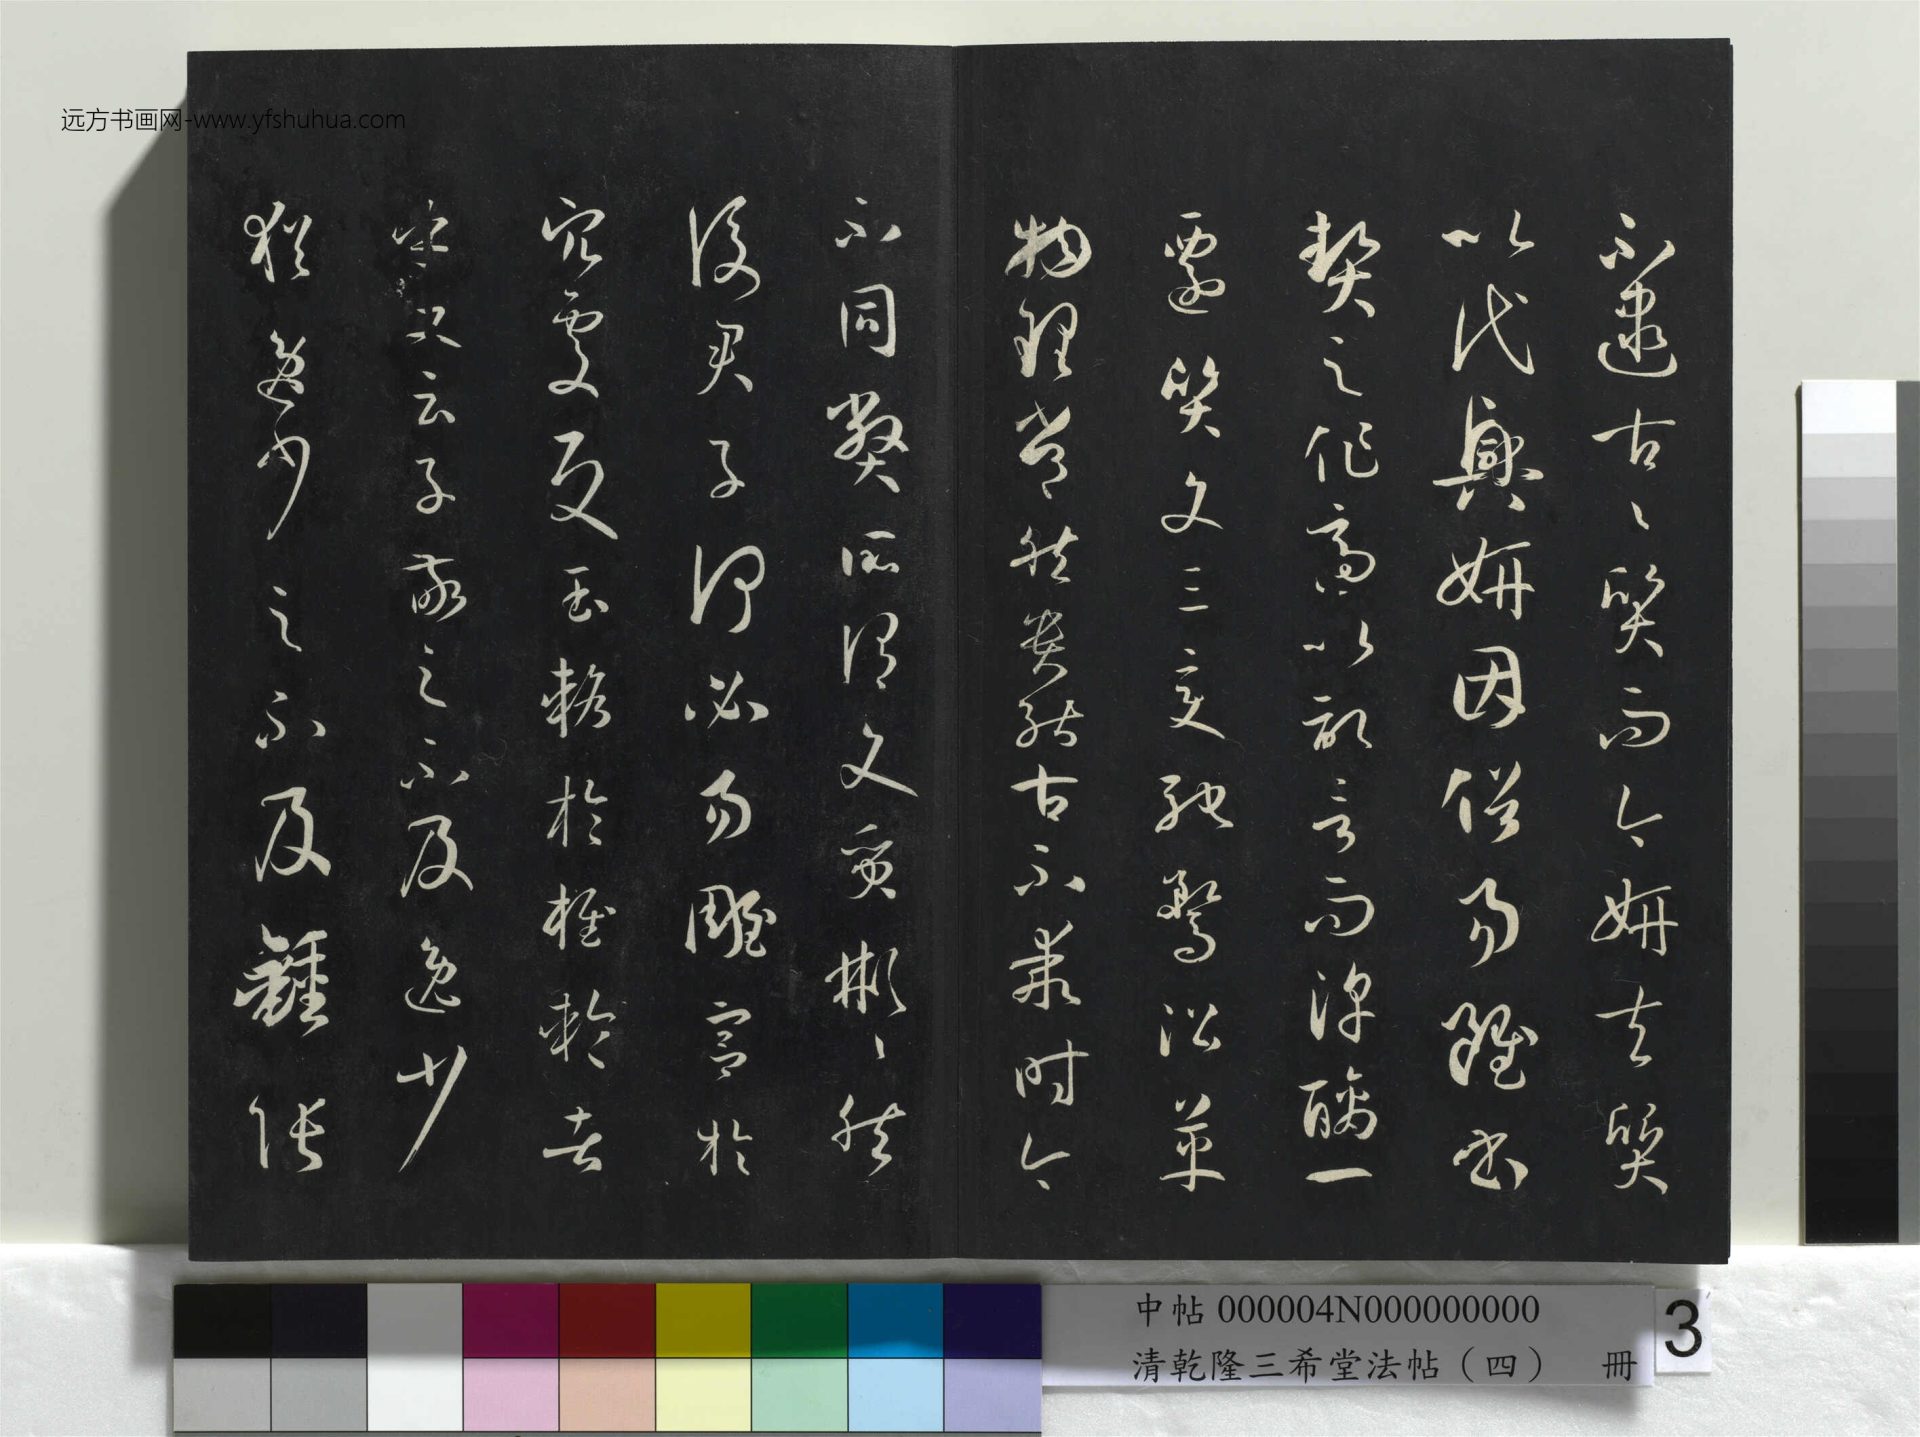 不逮古古質而今妍夫質
以代興妍因俗易雖書
契之作適以記言而淳醨一
遷質文三變馳騖沿革
物理常然貴能古不乖時今
不同弊所謂文質彬彬然
後君子何必易雕宮於
穴處反玉輅於椎輪者乎
又云子敬之不及逸少
猶逸少之不及鍾張
远方书画网-www.yfshuhua.com
中帖 000004N000000000
清乾隆三希堂法帖（四） 冊
3